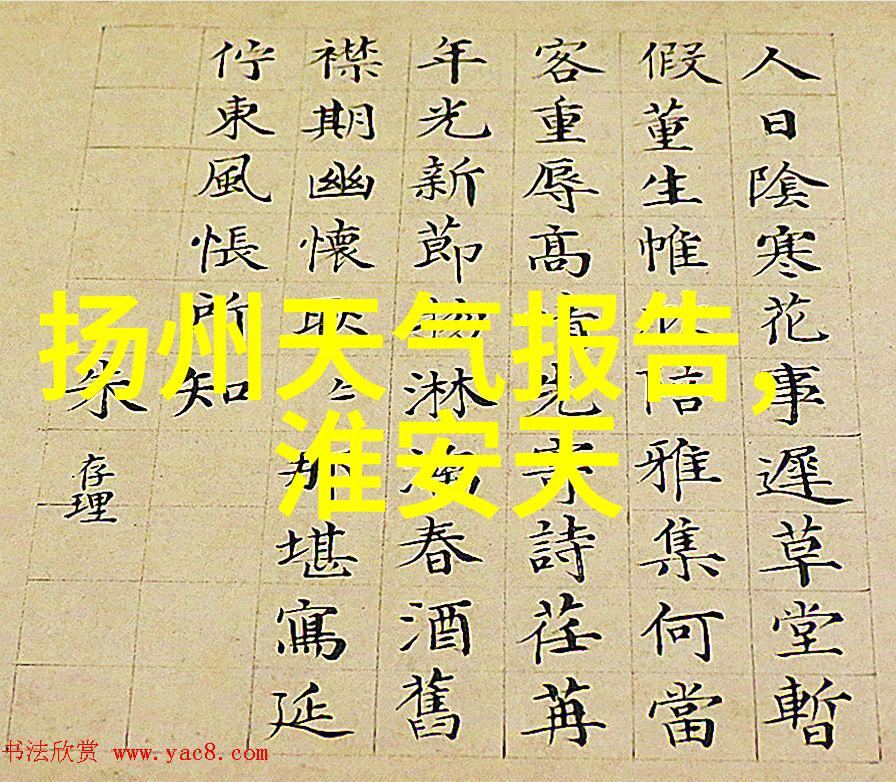 扬州天气报告，
淮安天
人日陰寒花事遲草堂暫
假董生帷陪雅集何當
客重辱高先寄詩荏苒
年光新節物淋漓春酒舊
襟期幽懷耿々那堪寫延
佇東風悵所知
朱存理
书法欣赏 www.yac8.com